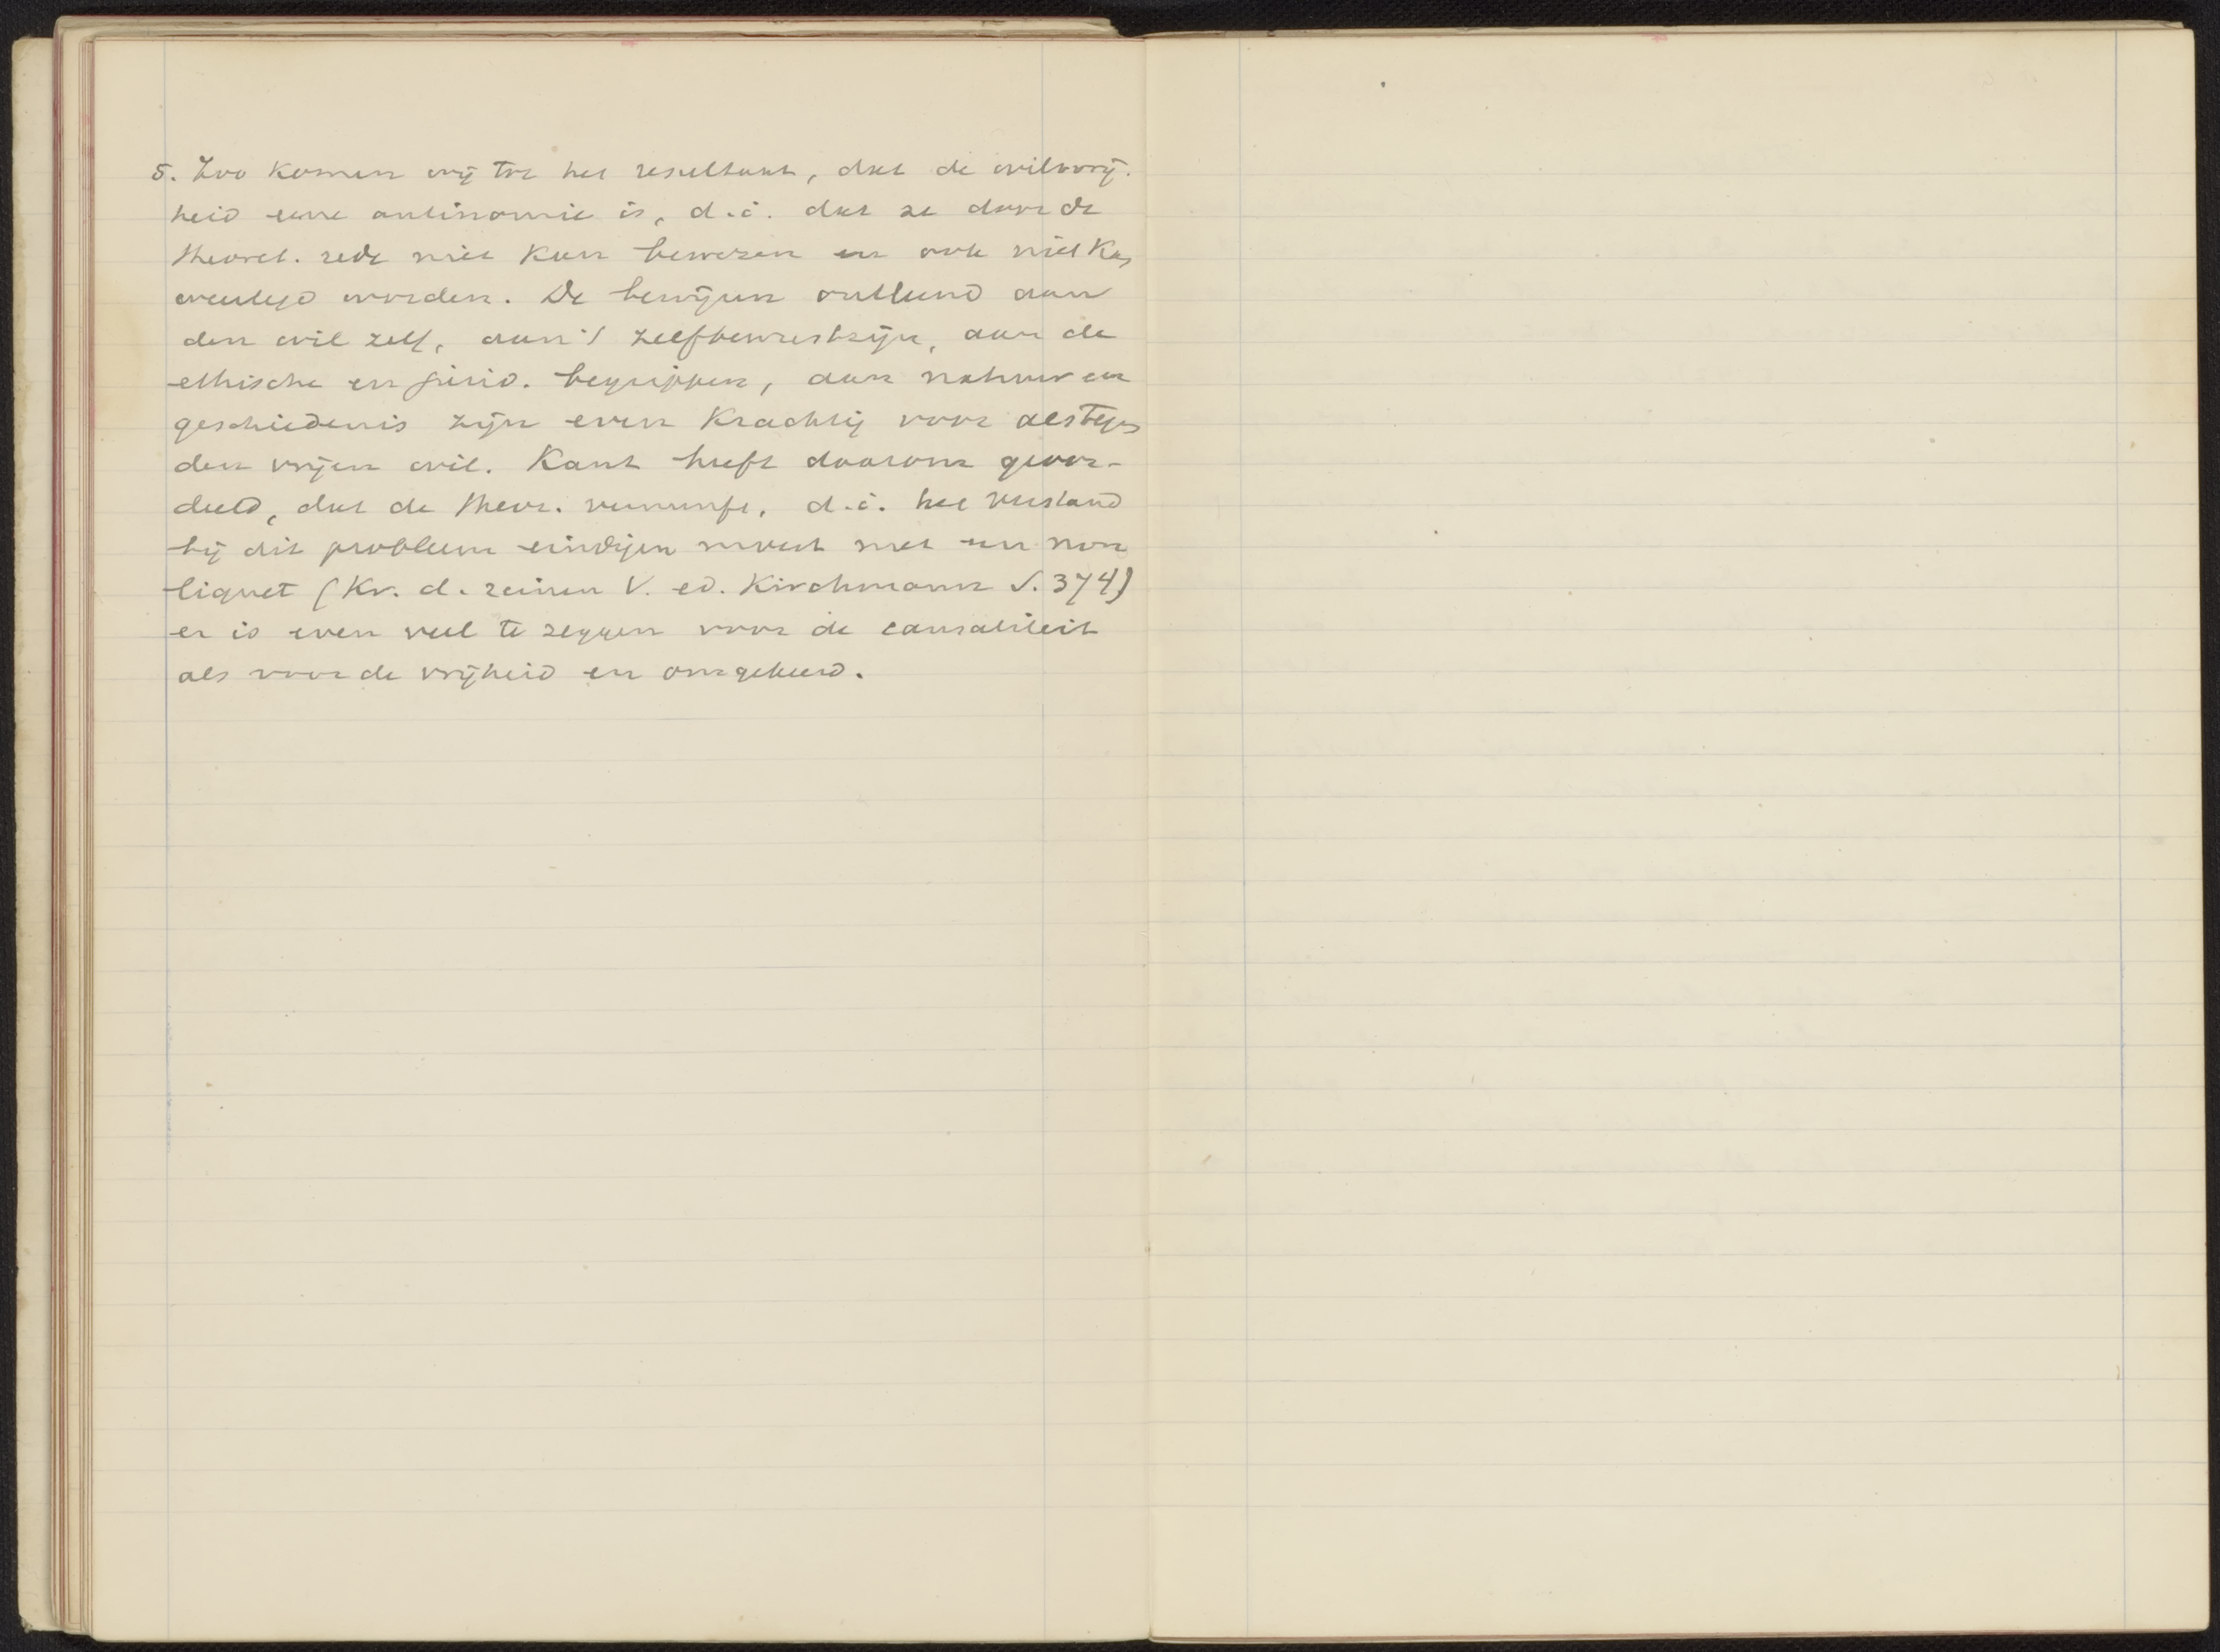 5. Zoo komen wij tot het resultaat, dat de wilsvrij-
heid eene antinomie is, d.i. dat ze door de
theoret. rede niet kan bewezen en ook niet kan
weerlegd worden. De bewijzen ontleend aan
den wil zelf, aan 't zelfbewustzijn, aan de
ethische en jurid. begrippen, aan natuur en
geschiedenis zijn even krachtig voor als tegen
den vrijen wil. Kant heeft daarom geoor-
deeld, dat de theor. vernunft, d.i. het verstand
bij dit probleem eindigen moest met een non
liquet (Kr. d. reinen V. ed. Kirchmann S. 374)
er is even veel te zeggen voor de causaliteit
als voor de vrijheid en omgekeerd.